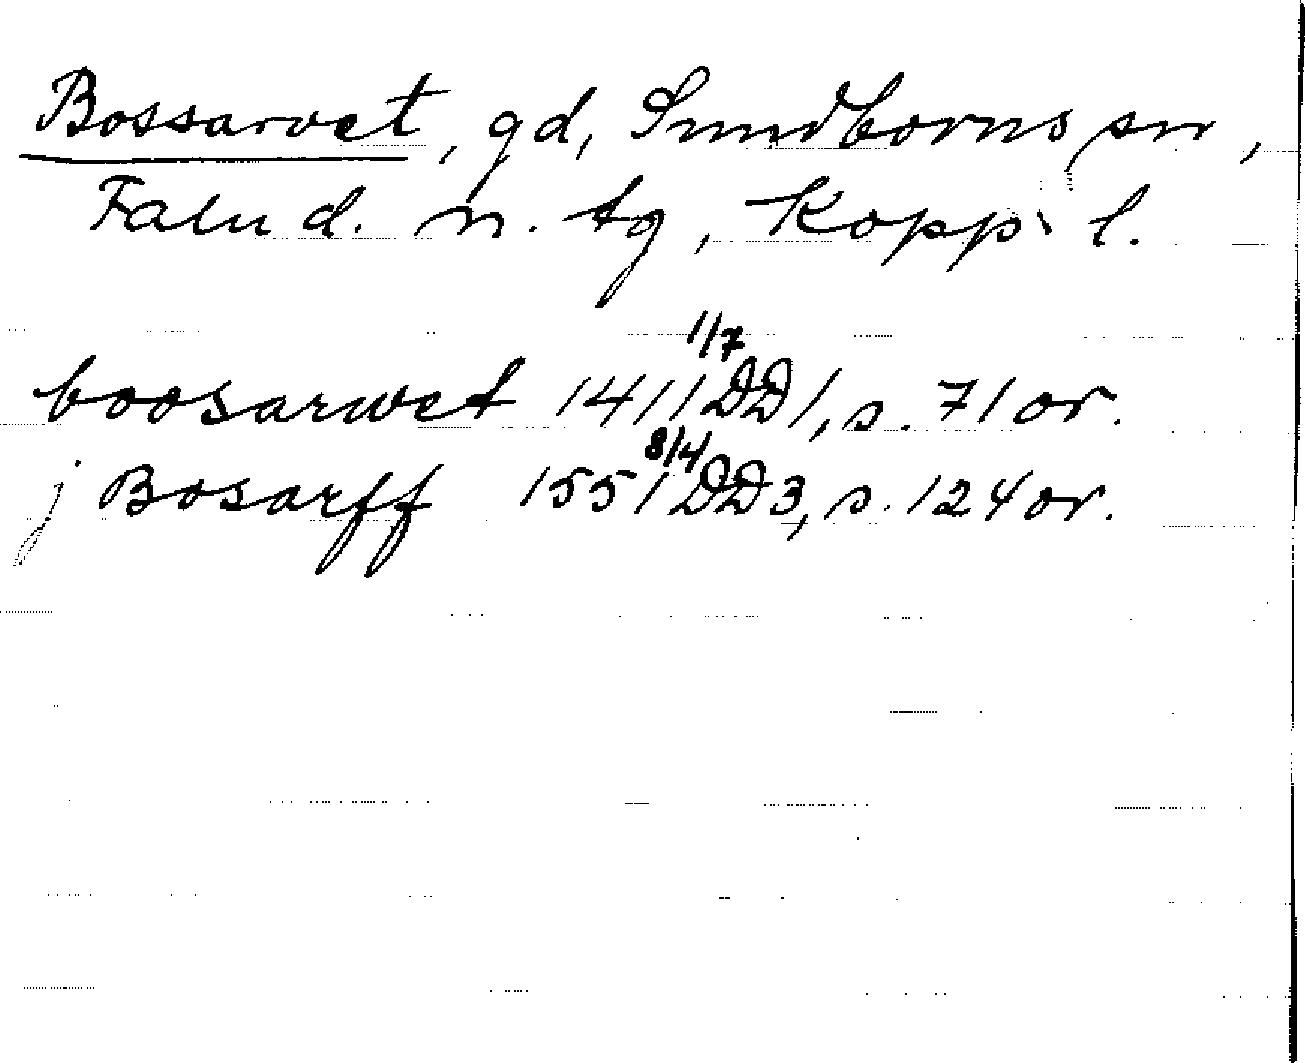 Bossarvet, gd, Sundborns sn,
Falu d. n. tg, Kopp. l.
boosarwet 1411 1/7 DD1, s. 71 or.
j Bosarff 1551 8/4 DD3, s. 124 or.